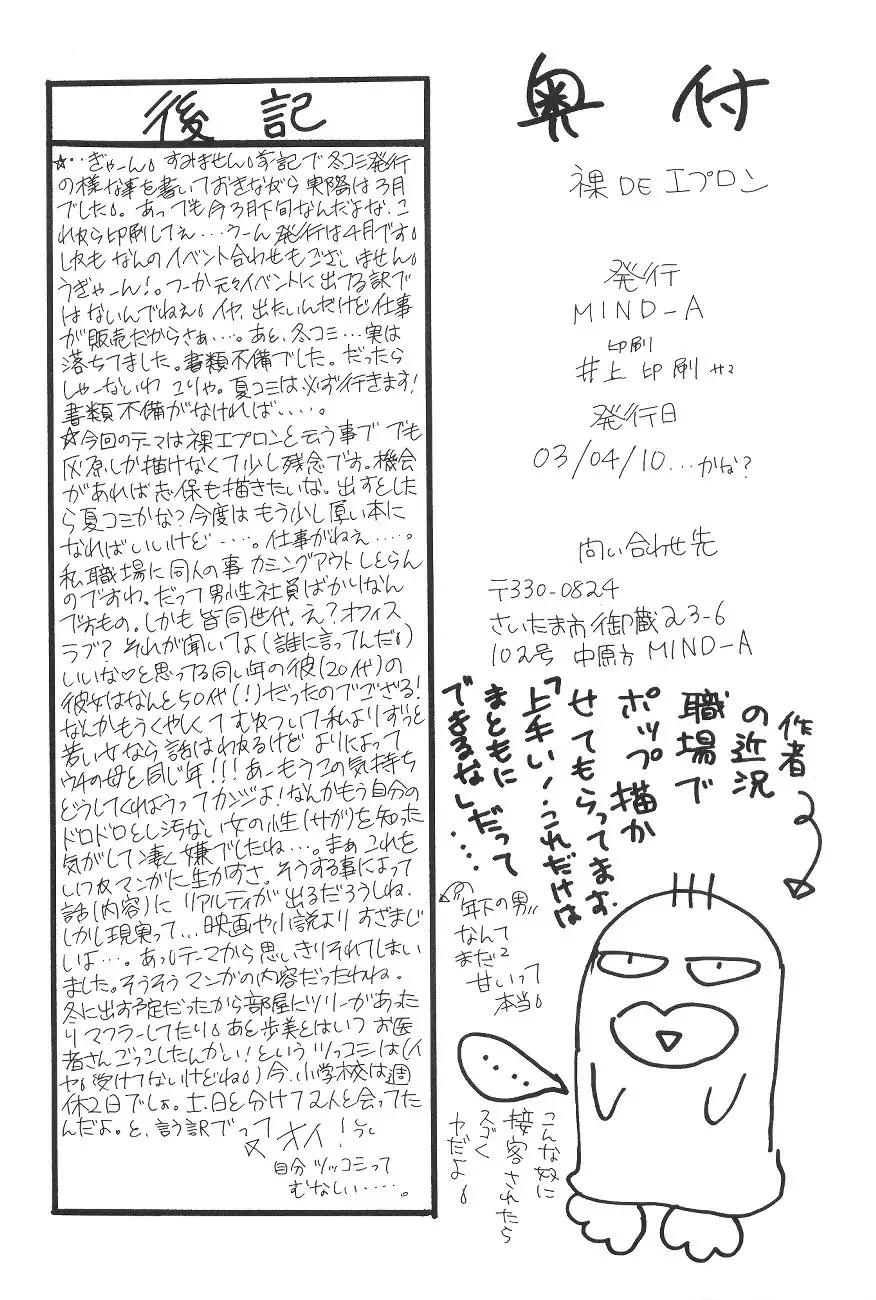 後記
☆‥ぎゃーん。すみません。前記で冬コミ発行
の様な事を書いておきながら実際は3月
でした。あっでも今3月下旬なんだよな、こ
れから印刷してぇ…うーん発行は4月です。
しかもなんのイベント合わせもございません。
うぎゃーん!。つーか元々イベントに出てる訳で
はないんでねぇ。イヤ、出たいんだけど仕事
が販売だからさぁ…。あと、冬コミ…実は
落ちてました。書類不備でした。だったら
しゃーないわ こりゃ。夏コミは必ず行きます!
書類不備がなければ‥‥。
☆今回のテーマは裸エプロンと云う事で でも
灰原しか描けなくて少し残念です。機会
があれば志保も描きたいな。出すとした
ら夏コミかな?今度はもう少し厚い本に
なればいいけど‥‥。仕事がねぇ‥‥。
私、職場に同人の事 カミングアウトしとらん
のですわ。だって男性社員ばかりなん
ですもの。しかも皆同世代。え?オフィス
ラブ? それが聞いてよ(誰に言ってんだ。)
いいな♡と思ってる同い年の彼(20代)の
彼女はなんと50代(!)だったのでござる!
なんかもうくやしくてむかついて私よりずっと
若い女なら話はわかるけど よりによって
ウチの母と同じ年!!!あーもうこの気持ち
どうしてくれようってカンジよ!なんかもう自分の
ドロドロとし汚ない女の性(サガ)を知った
気がして凄く嫌でしたね…。まぁこれを
しっかマンガに生かすさ。そうする事によって
話(内容)に リアルティが出るだろうしね。
しかし現実って…映画や小説より すざまじ
いよ…。あっ。テーマから思いきりそれてしまい
ました。そうそう マンガの内容だったわね。
冬に出す予定だったから部屋にツリーがあった
りマフラーしてたり。あと歩美とはいつ お医
者さんごっこしたんかい!という ツッコミは(イ
ヤ。受けてないけどね。)今、小学校は週
休2日でしょ。土、日と分けて2人と会ってた
んだよ。と、言う訳でっって
オイ!
自分ツッコミって
むなしい‥‥。
奥付
裸DEエプロン
発行
MIND-A
印刷
井上印刷
発行日
03/04/10…かな?
問い合わせ先
〒330-0824
さいたま市御蔵23-6
102号 中原方 MIND-A
作者
の近況
職場で
ポップ描か
せてもらってます。
「上手い!これだけは
まともに
できるな」だって
‥‥
年下の男
なんて
まだ2
甘いって
本当。
…
こんな奴に
接客されたら
スゴく
ヤだよ。